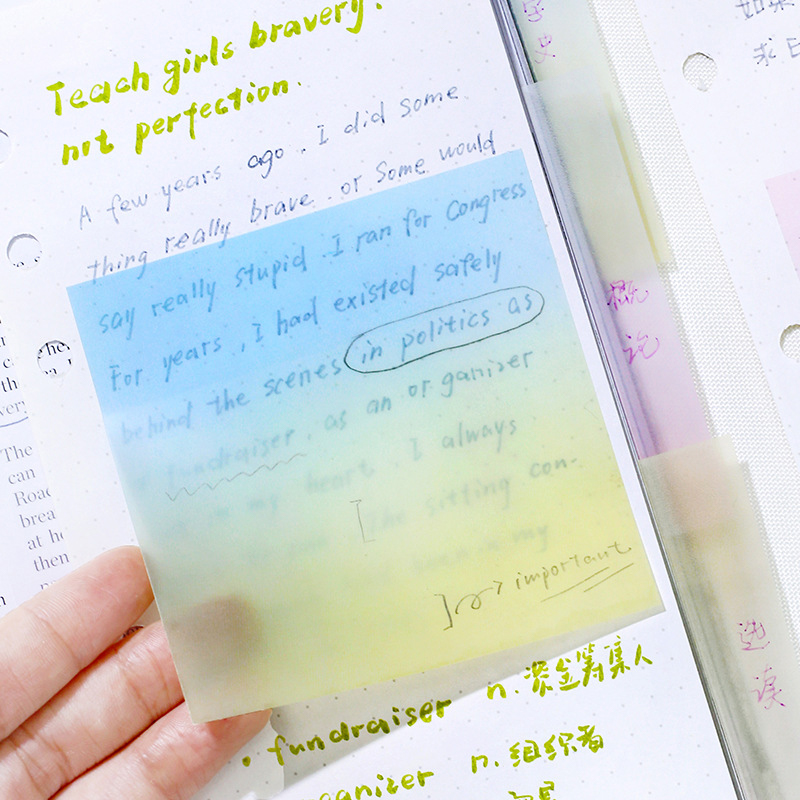 Teach girls bravery.
not perfection.
A few years ago. I did some
thing really brave. or some would
say really stupid. I ran for congress
For years, I had existed safely
behind the scenes in politics as
fundraiser. as an organizer
in my heart. I always
the sitting con-
my
important
• fundraiser n. 资金筹集人
organizer n. 组织者
史
概
论
选
读
如果
求
The
can
Road
brea
at ho
then